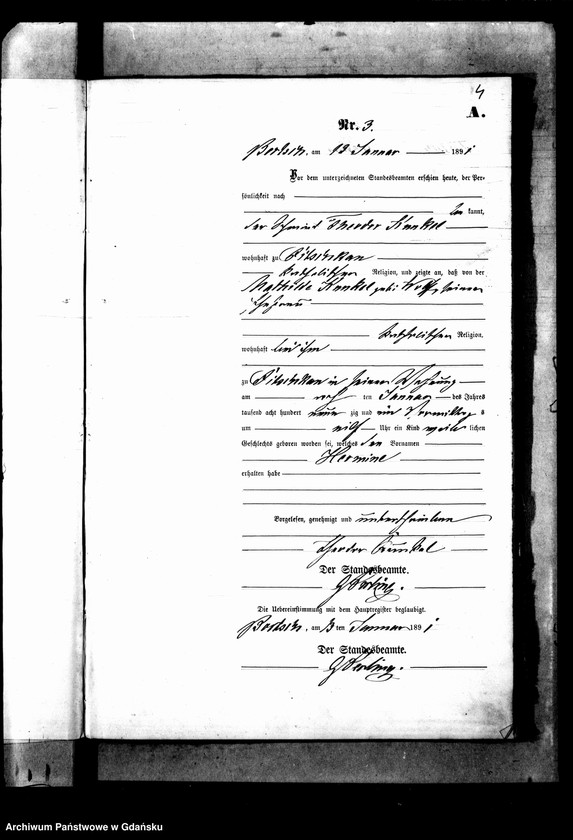 4
A.
Nr. 3.
am 13 Januar 1891
Vor dem unterzeichneten Standesbeamten erschien heute, der Per-
sönlichkeit nach
kannt,
der Schmied Theodor Kunkel
wohnhaft zu
katholischer Religion, und zeigte an, daß von der
Mathilde Kunkel geb. Wolff, seiner
Ehefrau
katholischer Religion,
wohnhaft bei ihm
zu in seiner Wohnung
am ten Januar des Jahres
tausend acht hundert neun zig und ein Vormittags
um Uhr ein Kind weib lichen
Geschlechts geboren worden sei, welches den Vornamen
Hermine
erhalten habe
Vorgelesen, genehmigt und unterschrieben
Theodor Kunkel
Der Standesbeamte.
Die Uebereinstimmung mit dem Hauptregister beglaubigt.
am 13 ten Januar 1891
Der Standesbeamte.
Archiwum Państwowe w Gdańsku